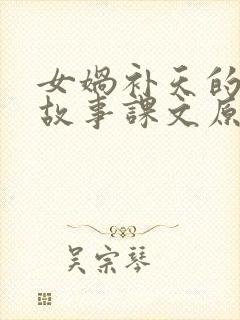 女娲补天的
故事课文原
吴宗琴